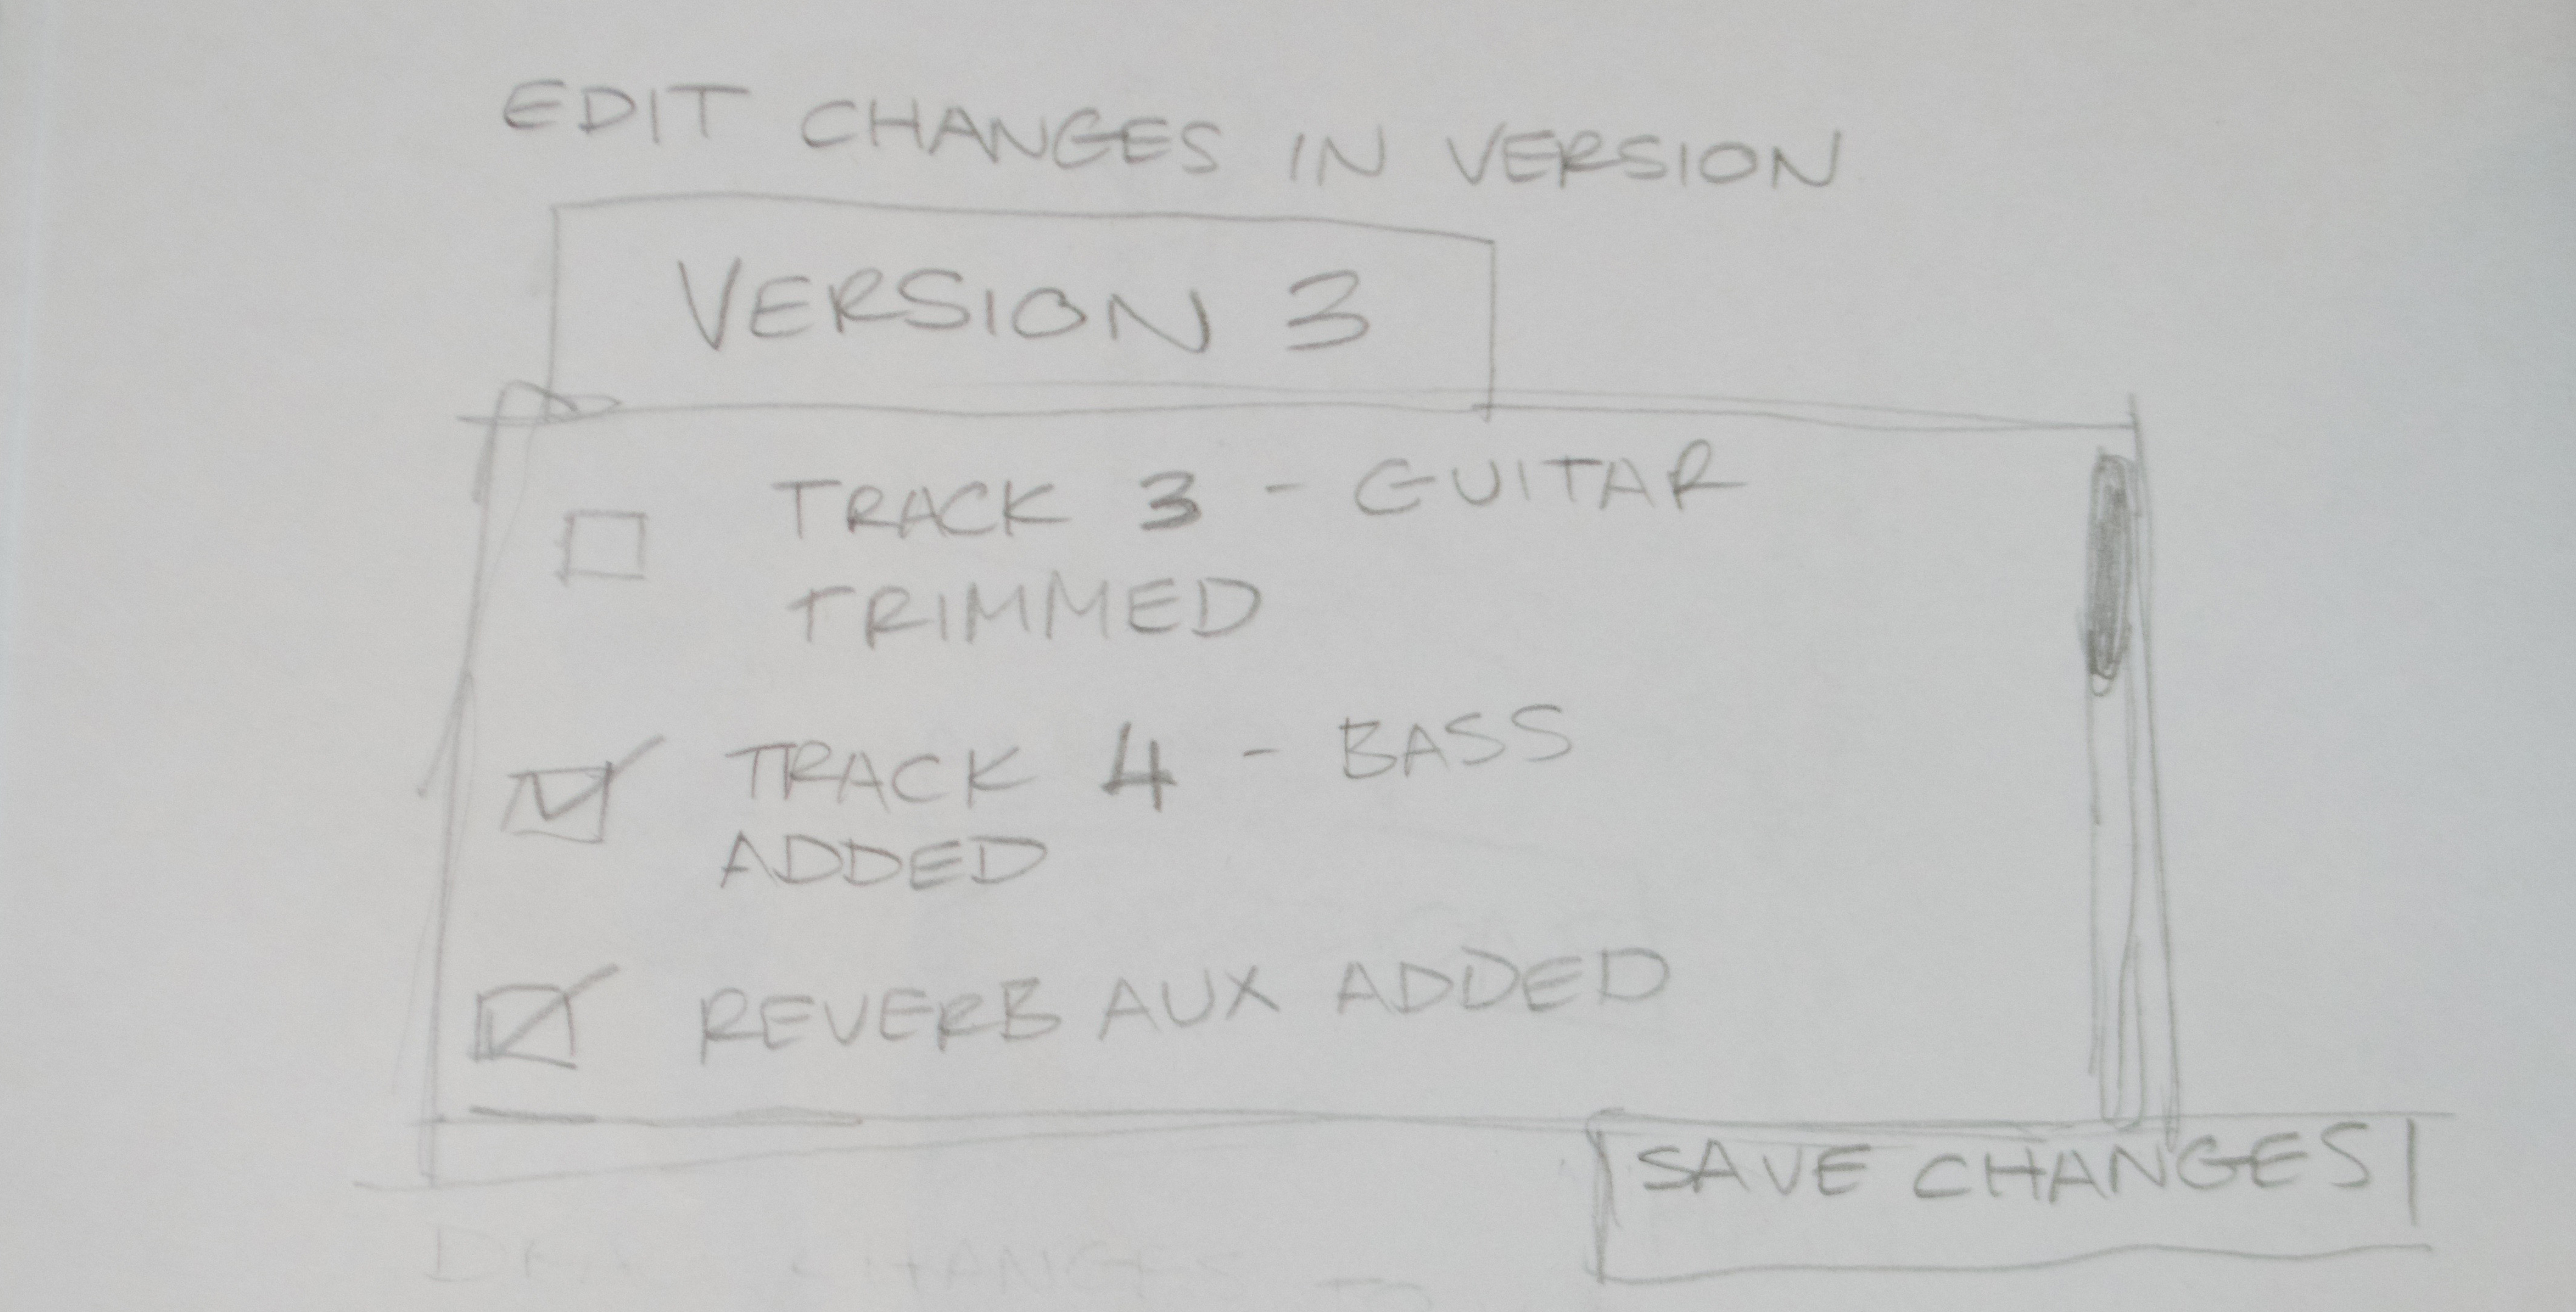 EDIT CHANGES IN VERSION
VERSION 3
TRACK 3 - GUITAR
TRIMMED
TRACK 4 - BASS
ADDED
REVERB AUX ADDED
SAVE CHANGES
CHANGES